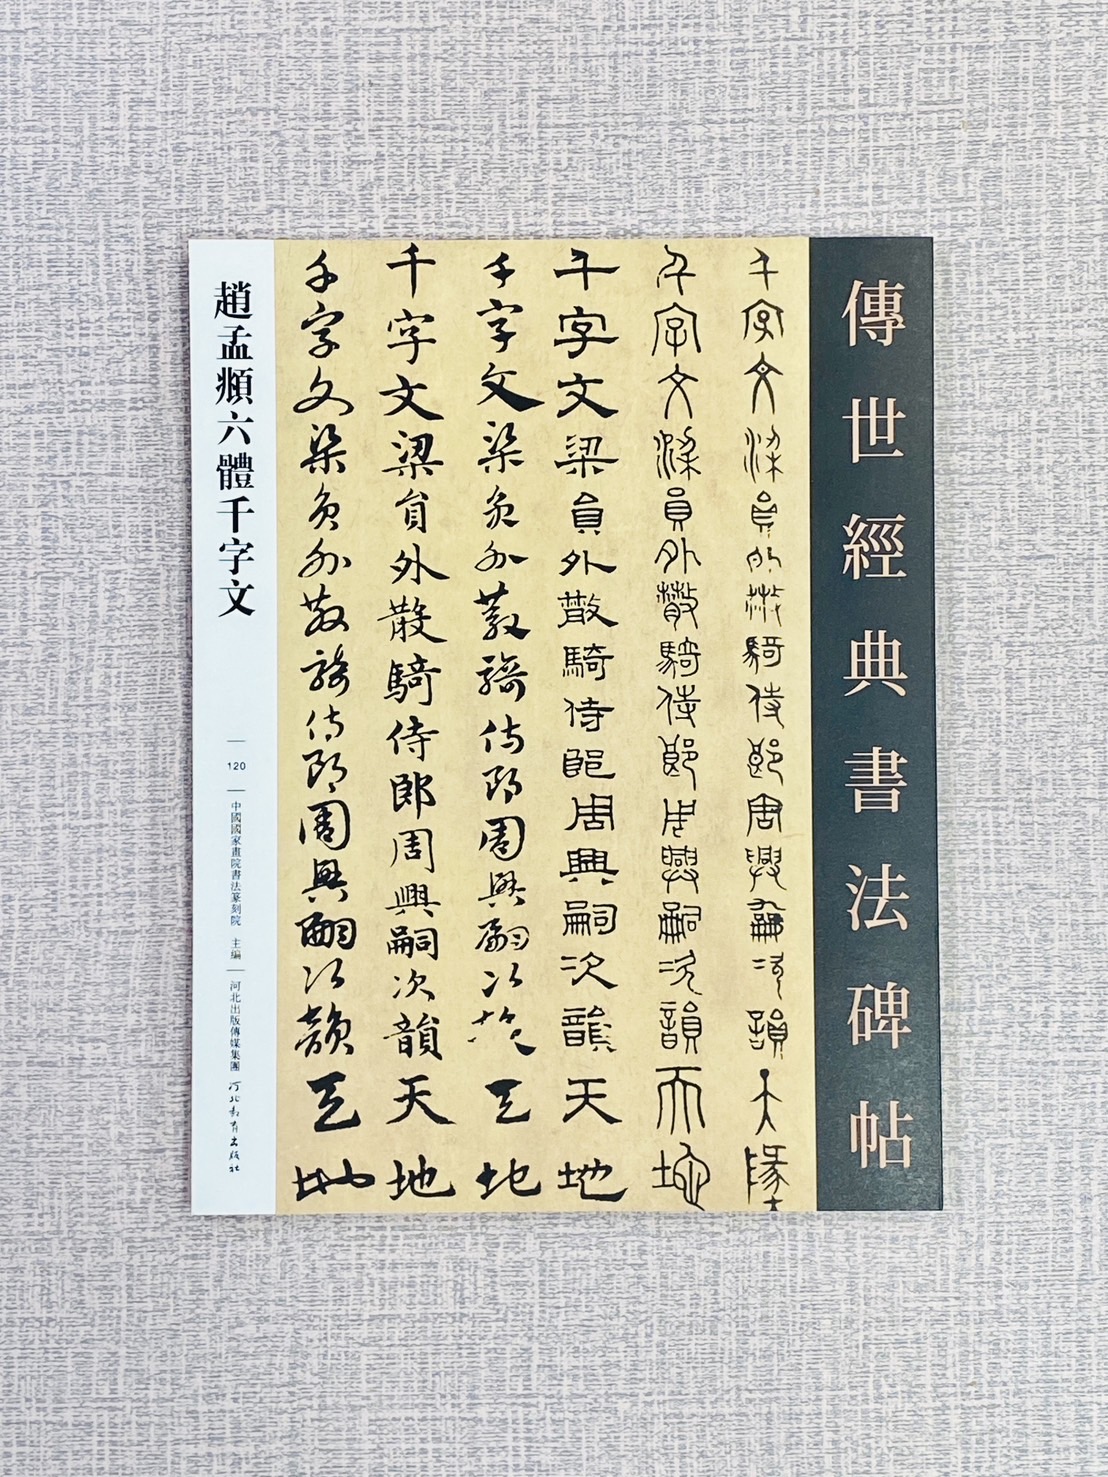 傳世經典書法碑帖
千字文梁員外散騎侍郎周興嗣次韻天地
千字文梁員外散騎侍郎周興嗣次韻天地
千字文梁員外散騎侍郎周興嗣次韻天地
千字文梁員外散騎侍郎周興嗣次韻天地
千字文梁員外散騎侍郎周興嗣次韻天地
千字文梁員外散騎侍郎周興嗣次韻天地
趙孟頫六體千字文
120
中國國家畫院書法篆刻院 主編
河北出版傳媒集團 河北教育出版社